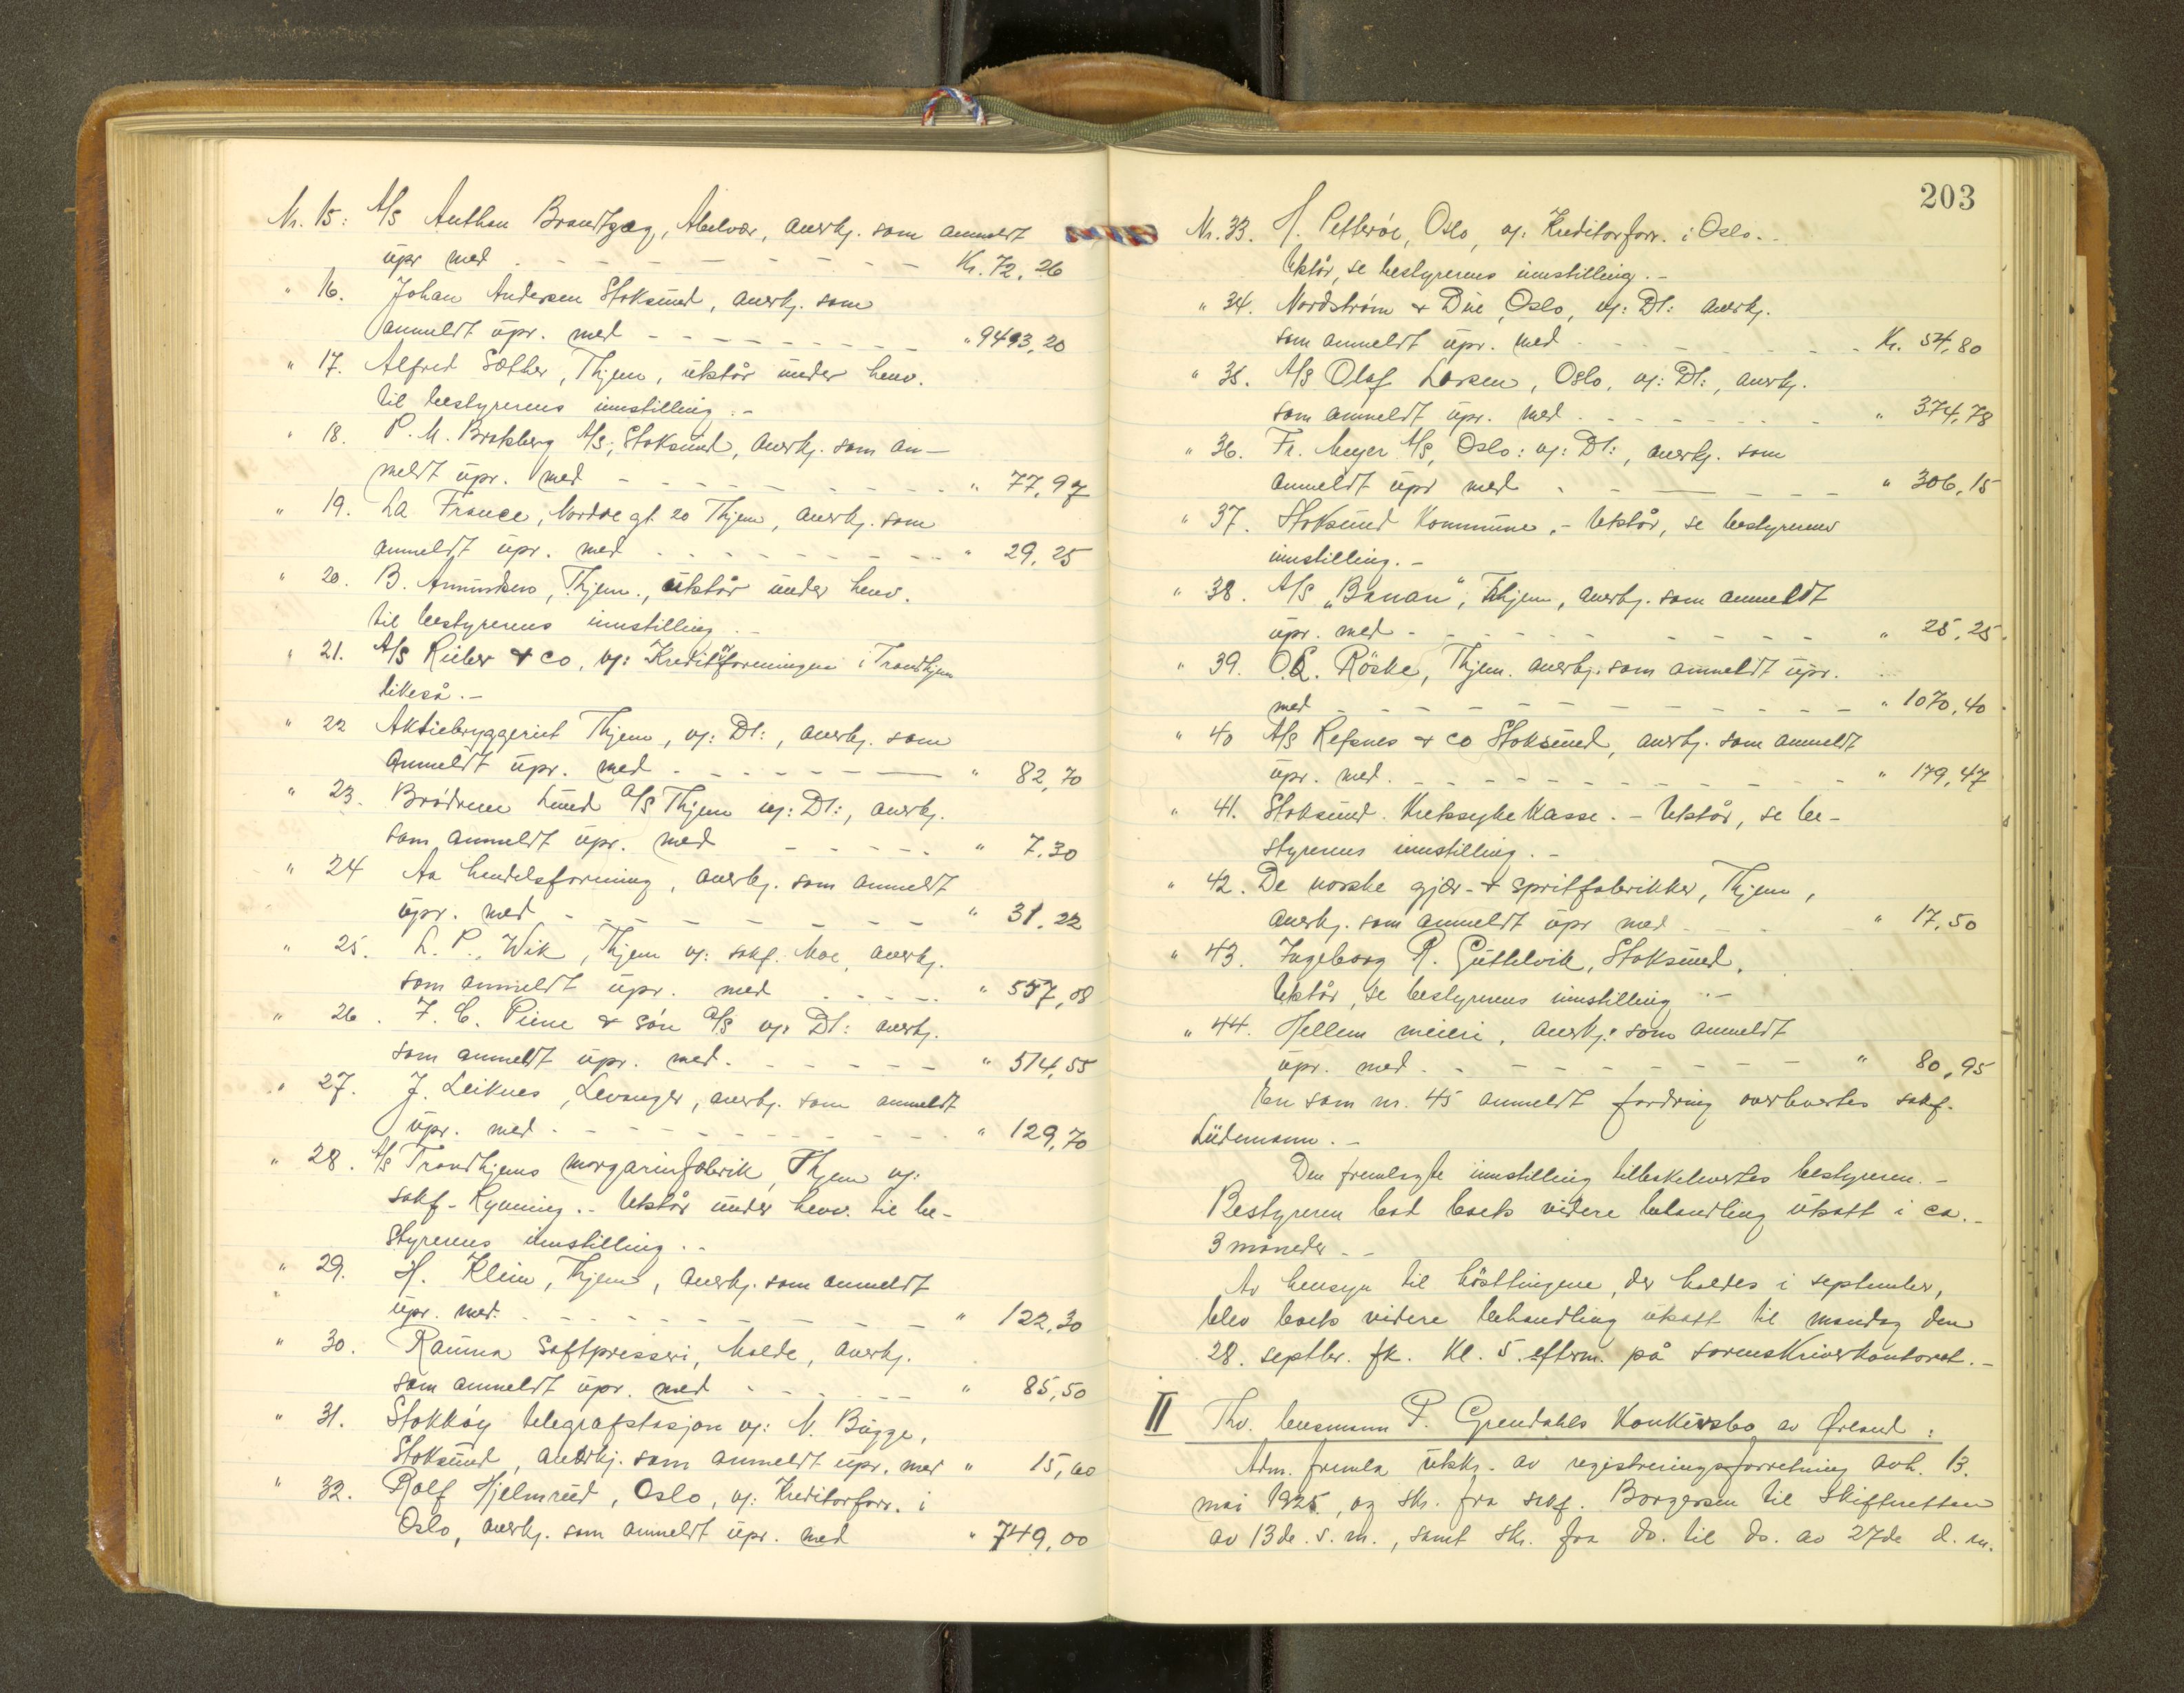 Nr. 15: A/S Anthon Brandtzæg, Abelvær, anerkj. som anmeldt
upr med - - - - - - - - Kr. 72,26
" 16. Johan Andersen Stoksund, anerkj. som
anmeldt upr. med - - - - - - - - " 9493,20
" 17. Alfred Sæther, Thjem, utstår under henv.
til bestyrerens innstilling. -
" 18. P. M. Brekberg A/S, Stoksund, anerkj. som an-
meldt upr. med - - - - - - - - " 77,97
" 19. La France, Nordre gt. 20 Thjem, anerkj. som
anmeldt upr. med - - - - - - - - " 29,25
" 20. B. Amundsen, Thjem., utstår under henv.
til bestyrerens innstilling. -
" 21. A/S Rieber & Co, v/: Kreditorforeningen i Trondhjem
likeså. -
" 22 Aktiebryggeriet Thjem, v/: D!:, anerkj. som
anmeldt upr. med - - - - - - " 82,70
" 23. Brødrene Lund A/S Thjem v/: D!:, anerkj.
som anmeldt upr. med - - - - - " 7,30
" 24 Aa handelsforening, anerkj. som anmeldt
upr. med - - - - - - - - " 31,22
" 25. L. P. Wik, Thjem v/: sakf. Moe, anerkj.
som anmeldt upr. med - - - - - " 557,08
" 26. F. C. Piene & Søn A/S v/: D!: anerkj.
som anmeldt upr. med. - - - - - - " 514,55
" 27. J. Leiknes, Levanger, anerkj. som anmeldt
upr. med - - - - - - - - - " 129,70
" 28. A/S Trondhjems margarinfabrik, Thjem v/:
sakf. Rynning. - Utstår under henv. til be-
styrerens innstilling. -
" 29. H. Klein, Thjem, anerkj. som anmeldt
upr. med. - - - - - - - - " 122,30
" 30. Rauma Saftpresseri, Molde, anerkj.
som anmeldt upr. med - - - - - - " 85,50
" 31. Stokkøy telegrafstasjon v/: N. Bugge,
Stoksund, anerkj. som anmeldt upr. med " 15,60
" 32. Rolf Hjelmrud, Oslo, v/: Kreditorforr. i
Oslo, anerkj. som anmeldt upr. med " 749,00
203
Nr. 33. H. Petterøe, Oslo, v/: Kreditorforr. i Oslo. -
Utstår, se bestyrerens innstilling. -
" 34. Nordstrøm & Due, Oslo, v/: D!: anerkj.
som anmeldt upr. med - - - - - - - Kr. 54,80
" 35. A/S Olaf Larsen, Oslo, v/: D!:, anerkj.
som anmeldt upr. med - - - - - - - " 374,78
" 36. Fr. Meyer A/S, Oslo: v/: D!:, anerkj. som
anmeldt upr med - - - - - - - " 306,15
" 37. Stoksund Kommune, - Utstår, se bestyrerens
innstilling. -
" 38. A/S „Banan", Thjem, anerkj. som anmeldt
upr. med - - - - - - - - - - " 25,25.
" 39. O. L. Röske, Thjem. anerkj. som anmeldt upr.
med - - - - - - - - - - - - " 1070,40.
" 40 A/S Refsnes & Co Stoksund, anerkj. som anmeldt
upr. med. - - - - - - - - - - - " 179,47
" 41. Stoksund Kretssykekasse. - Utstår, se be-
styrerens innstilling. -
" 42. De norske gjær- & spritfabrikker, Thjem,
anerkj. som anmeldt upr med - - - " 17,50
" 43. Ingeborg R. Guttelvik, Stoksund,
Utstår, se bestyrerens innstilling. -
" 44. Hellem meieri, anerkj. som anmeldt
upr. med. - - - - - - - - " 80,95
En som nr. 45 anmeldt fordring overleveres sakf.
Lüdemann. -
Den fremlagte innstilling tilbakeleveres bestyreren. -
Bestyreren bad boets videre behandling utsatt i ca. -
3 måneder. -
Av hensyn til høsttingene, der holdes i september,
blev boets videre behandling utsatt til mandag den
28. septbr. fk. kl. 5 efterm. på sorenskriverkontoret. -
II Thv. lensmann P. Grendahls Konkursbo av Ørland:
Adm. fremla utskr. av registreringsforretning avh. 13.
mai 1925, og skr. fra sakf. Borgersen til skifteretten
av 13de s. m., samt skr. fra do. til do. av 27de d. m.